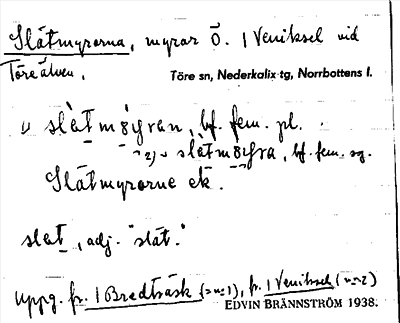 Slåtmyrorna, myrar Ö. i Veniksel vid
Töreälven.
Töre sn, Nederkalix tg, Norrbottens l.
1) slàtmøyran, bf. fem. pl.
2) slàtmøyra, bf. fem. sg.
Slåtmyrorne ek.
slat, adj. "slät."
Uppg. fr. i Bredträsk (= n:1), fr. i Veniksel (n:2)
EDVIN BRÄNNSTRÖM 1938.